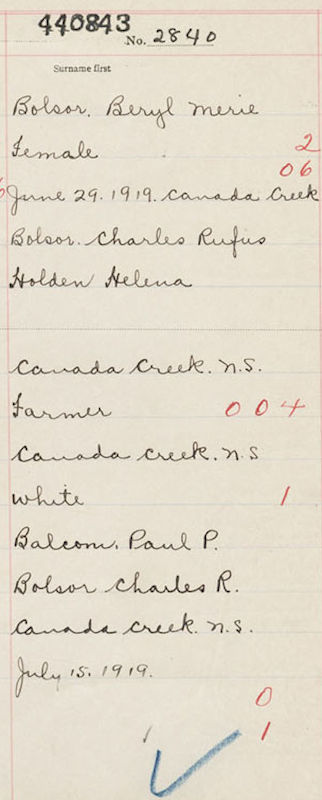 440843
No. 2840
Surname first
Bolsor. Beryl Merie
Female 2
06
June 29. 1919. Canada Creek
Bolsor. Charles Rufus
Holden Helena
Canada Creek. N.S.
Farmer 004
Canada Creek. N.S
White 1
Balcom, Paul P.
Bolsor Charles R.
Canada Creek. N.S.
July 15. 1919.
0
1